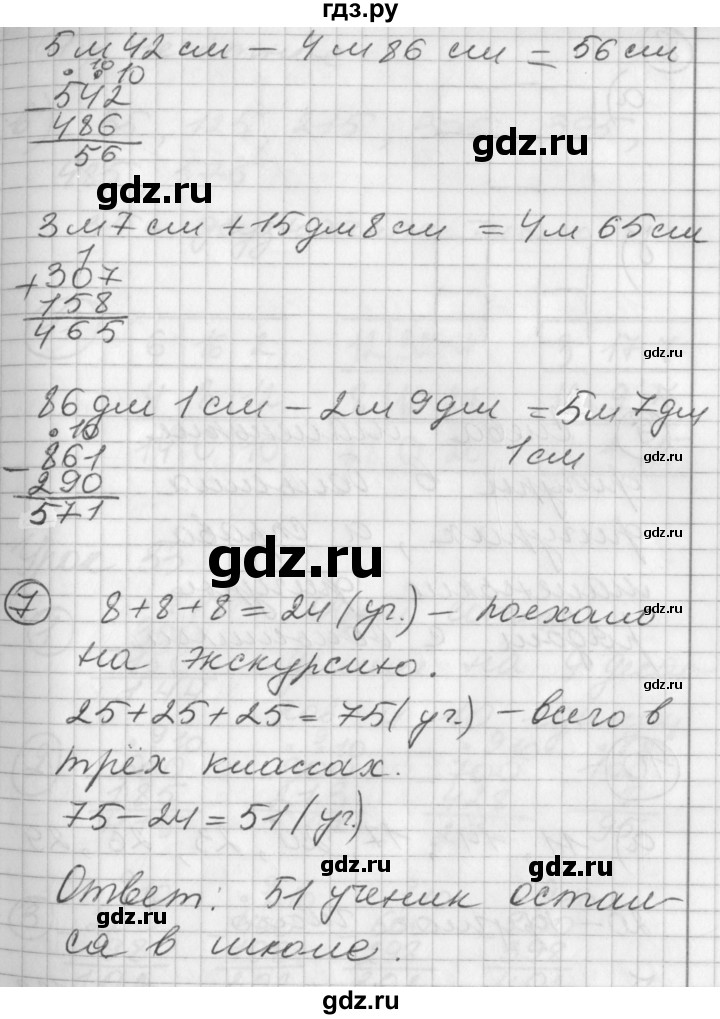 гдз.ру
5 м 42 см – 4 м 86 см = 56 см
10 10
– 542
486
56
gdz.ru
gdz.ru
3 м 7 см + 15 дм 8 см = 4 м 65 см
1
+ 307
158
465
gdz.ru
86 дм 1 см – 2 м 9 дм = 5 м 7 дм
1 см
10
– 861
290
571
gdz.ru
gdz.ru
gdz.ru
7 8 + 8 + 8 = 24 (уч.) – поехало
gdz.ru
на экскурсию.
gdz.ru
25 + 25 + 25 = 75 (уч.) – всего в
трёх классах.
75 – 24 = 51 (уч.)
gdz.ru
gdz.ru
Ответ: 51 ученик остал-
gdz.ru
ся в школе.
gdz.ru
gdz.ru